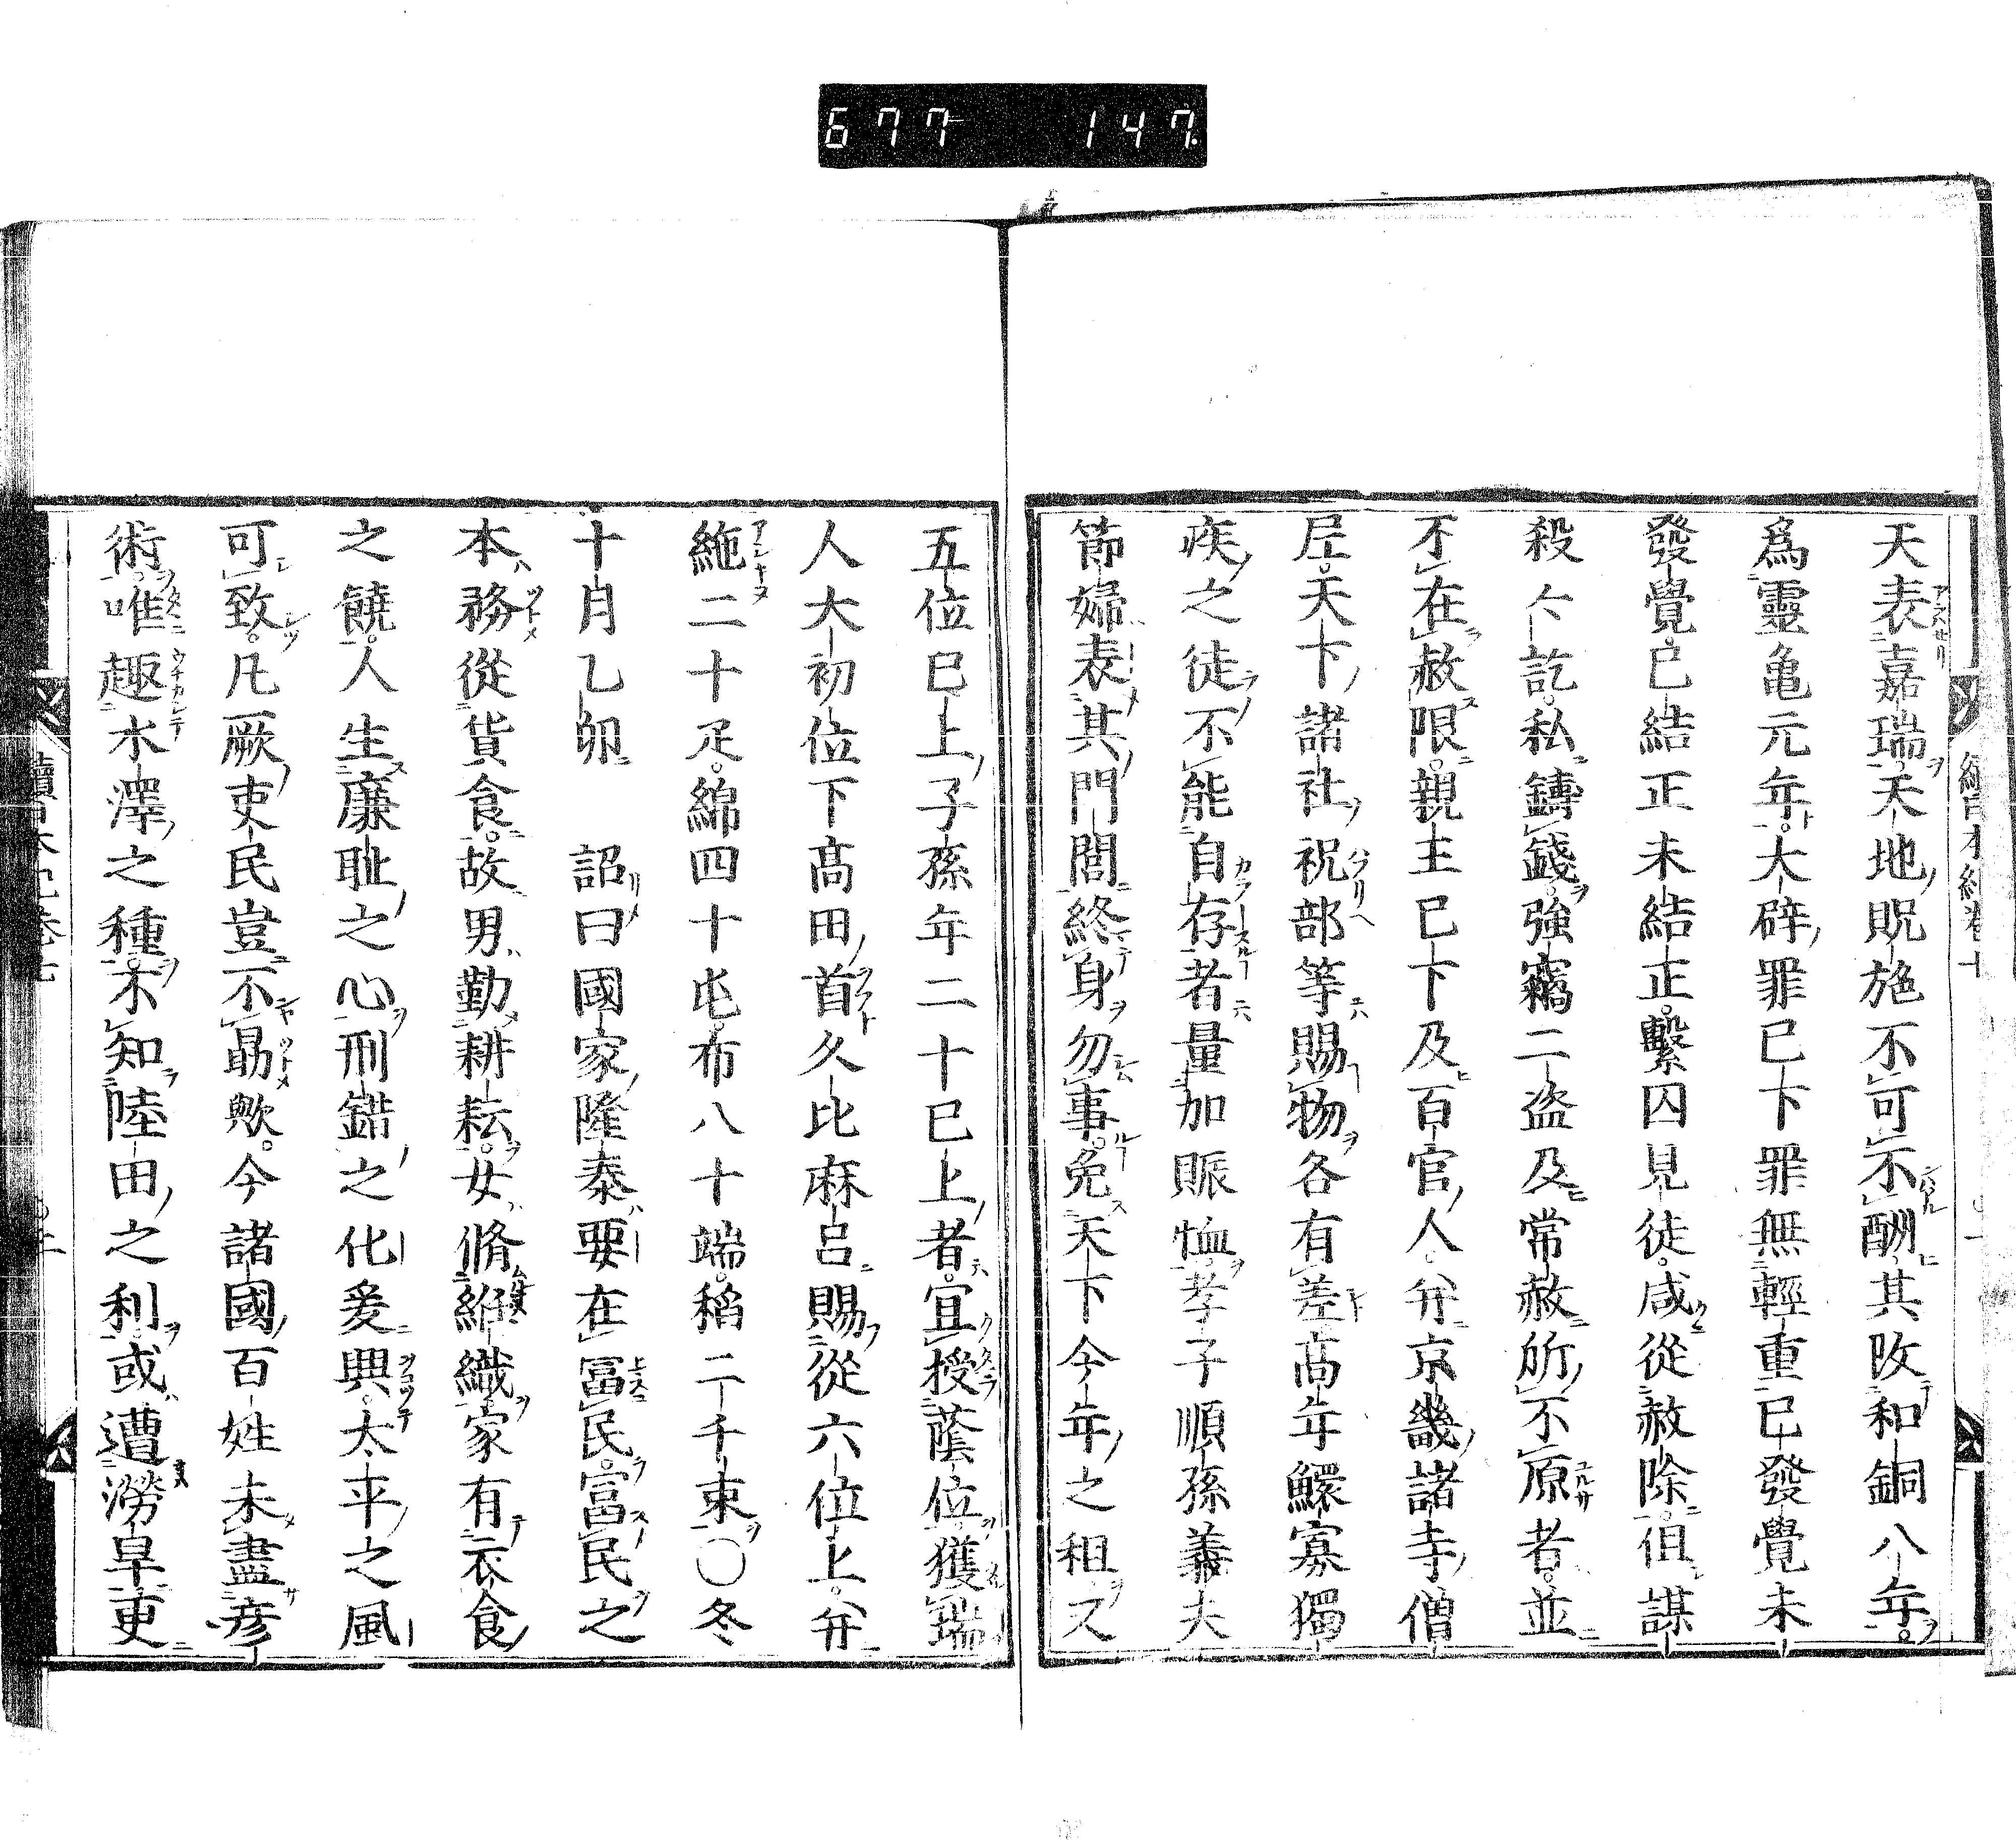 677 147
天表嘉瑞天地貺施不可不酬其改和銅八年。
爲靈亀元年。大辟罪已下罪無輕重已發覺未
發覺。已結正未結正。繫囚見徒。咸從赦除。但謀
殺人訖。私鑄錢。強竊二盗及常赦所不原者。並
不在赦限。親王已下及百官人。并京畿諸寺僧
尼。天下諸社祝部等賜物各有差高年鰥寡獨
疾之徒不能自存者量加賑恤。孝子順孫義夫
節婦表其門閭終身勿事。免天下今年之租又
五位已上子孫年二十已上者。宜授蔭位獲瑞
人大初位下髙田首久比麻呂賜從六位上。并
絁二十疋。綿四十屯。布八十端。稻二千束〇冬
十月乙卯 詔曰國家隆泰要在冨民。富民之
本務從貨食。故男勤耕耘。女脩絍織家有衣食
之饒。人生廉耻之心刑錯之化爰興。太平之風
可致。凡厥吏民豈不勗歟。今諸國百姓未盡産
術。唯趣水澤之種。不知陸田之利或遭澇旱更
續日本紀卷七